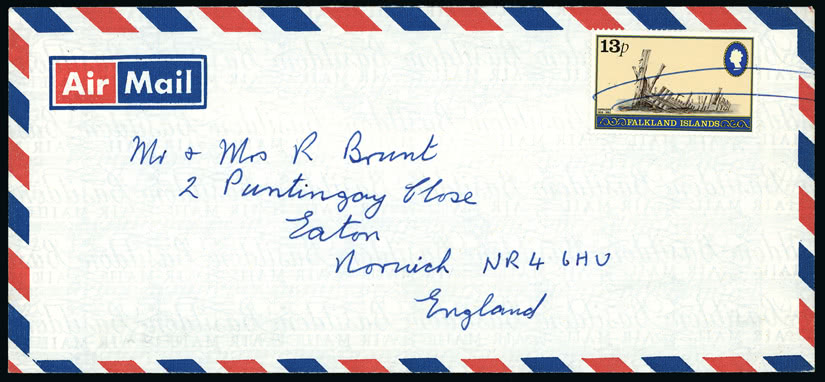 Air Mail
13p
FALKLAND ISLANDS
Mr & Mrs R Brunt
2 Puntingay Close
Eaton
Norwich NR4 6HU
England